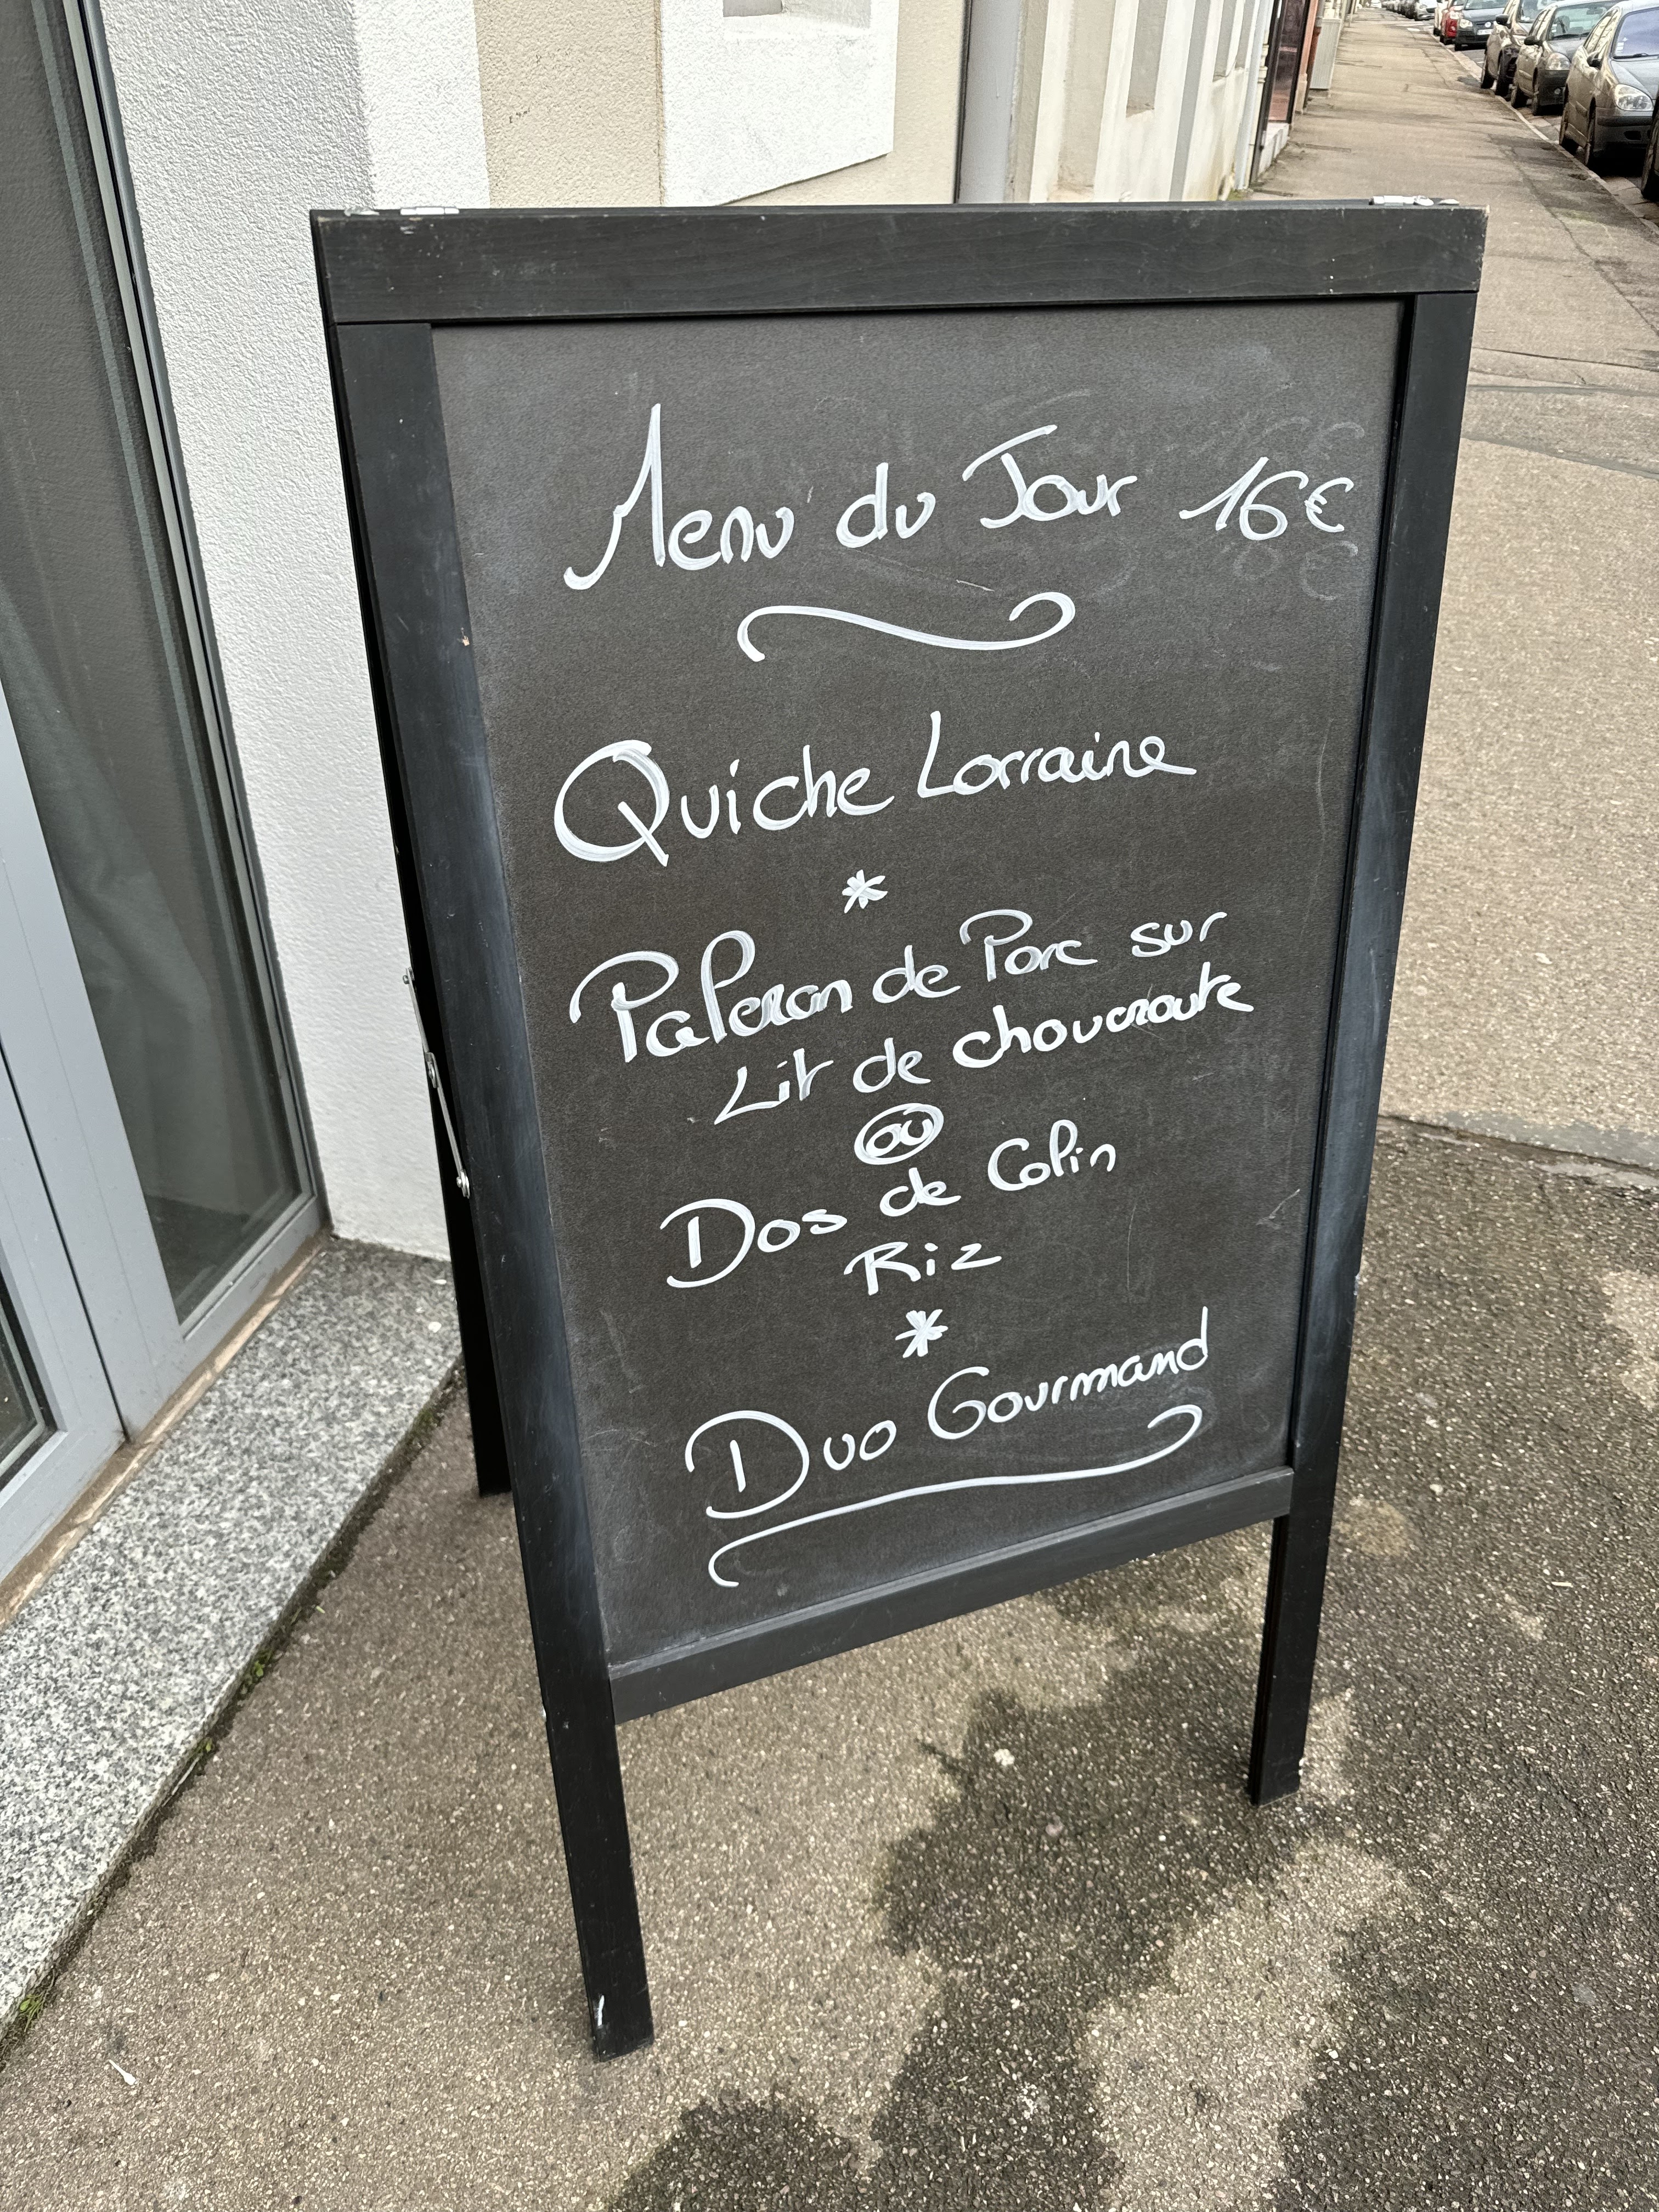 Menu du Jour 16€
Quiche Lorraine
*
Paleron de Porc sur
Lit de choucroute
ou
Dos de Colin
Riz
*
Duo Gourmand